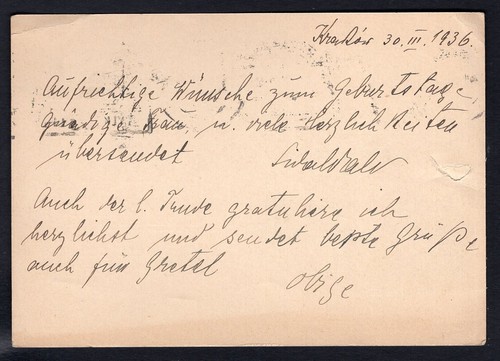 Kraków 30.III.1936.
Aufrichtige Wünsche zum Geburtstage,
gnädige Frau u. viele Herzlichkeiten
übersendet
Auch der l. gratuliere ich
herzlichst und sendet beste Grüße
auch für Gretel
obige